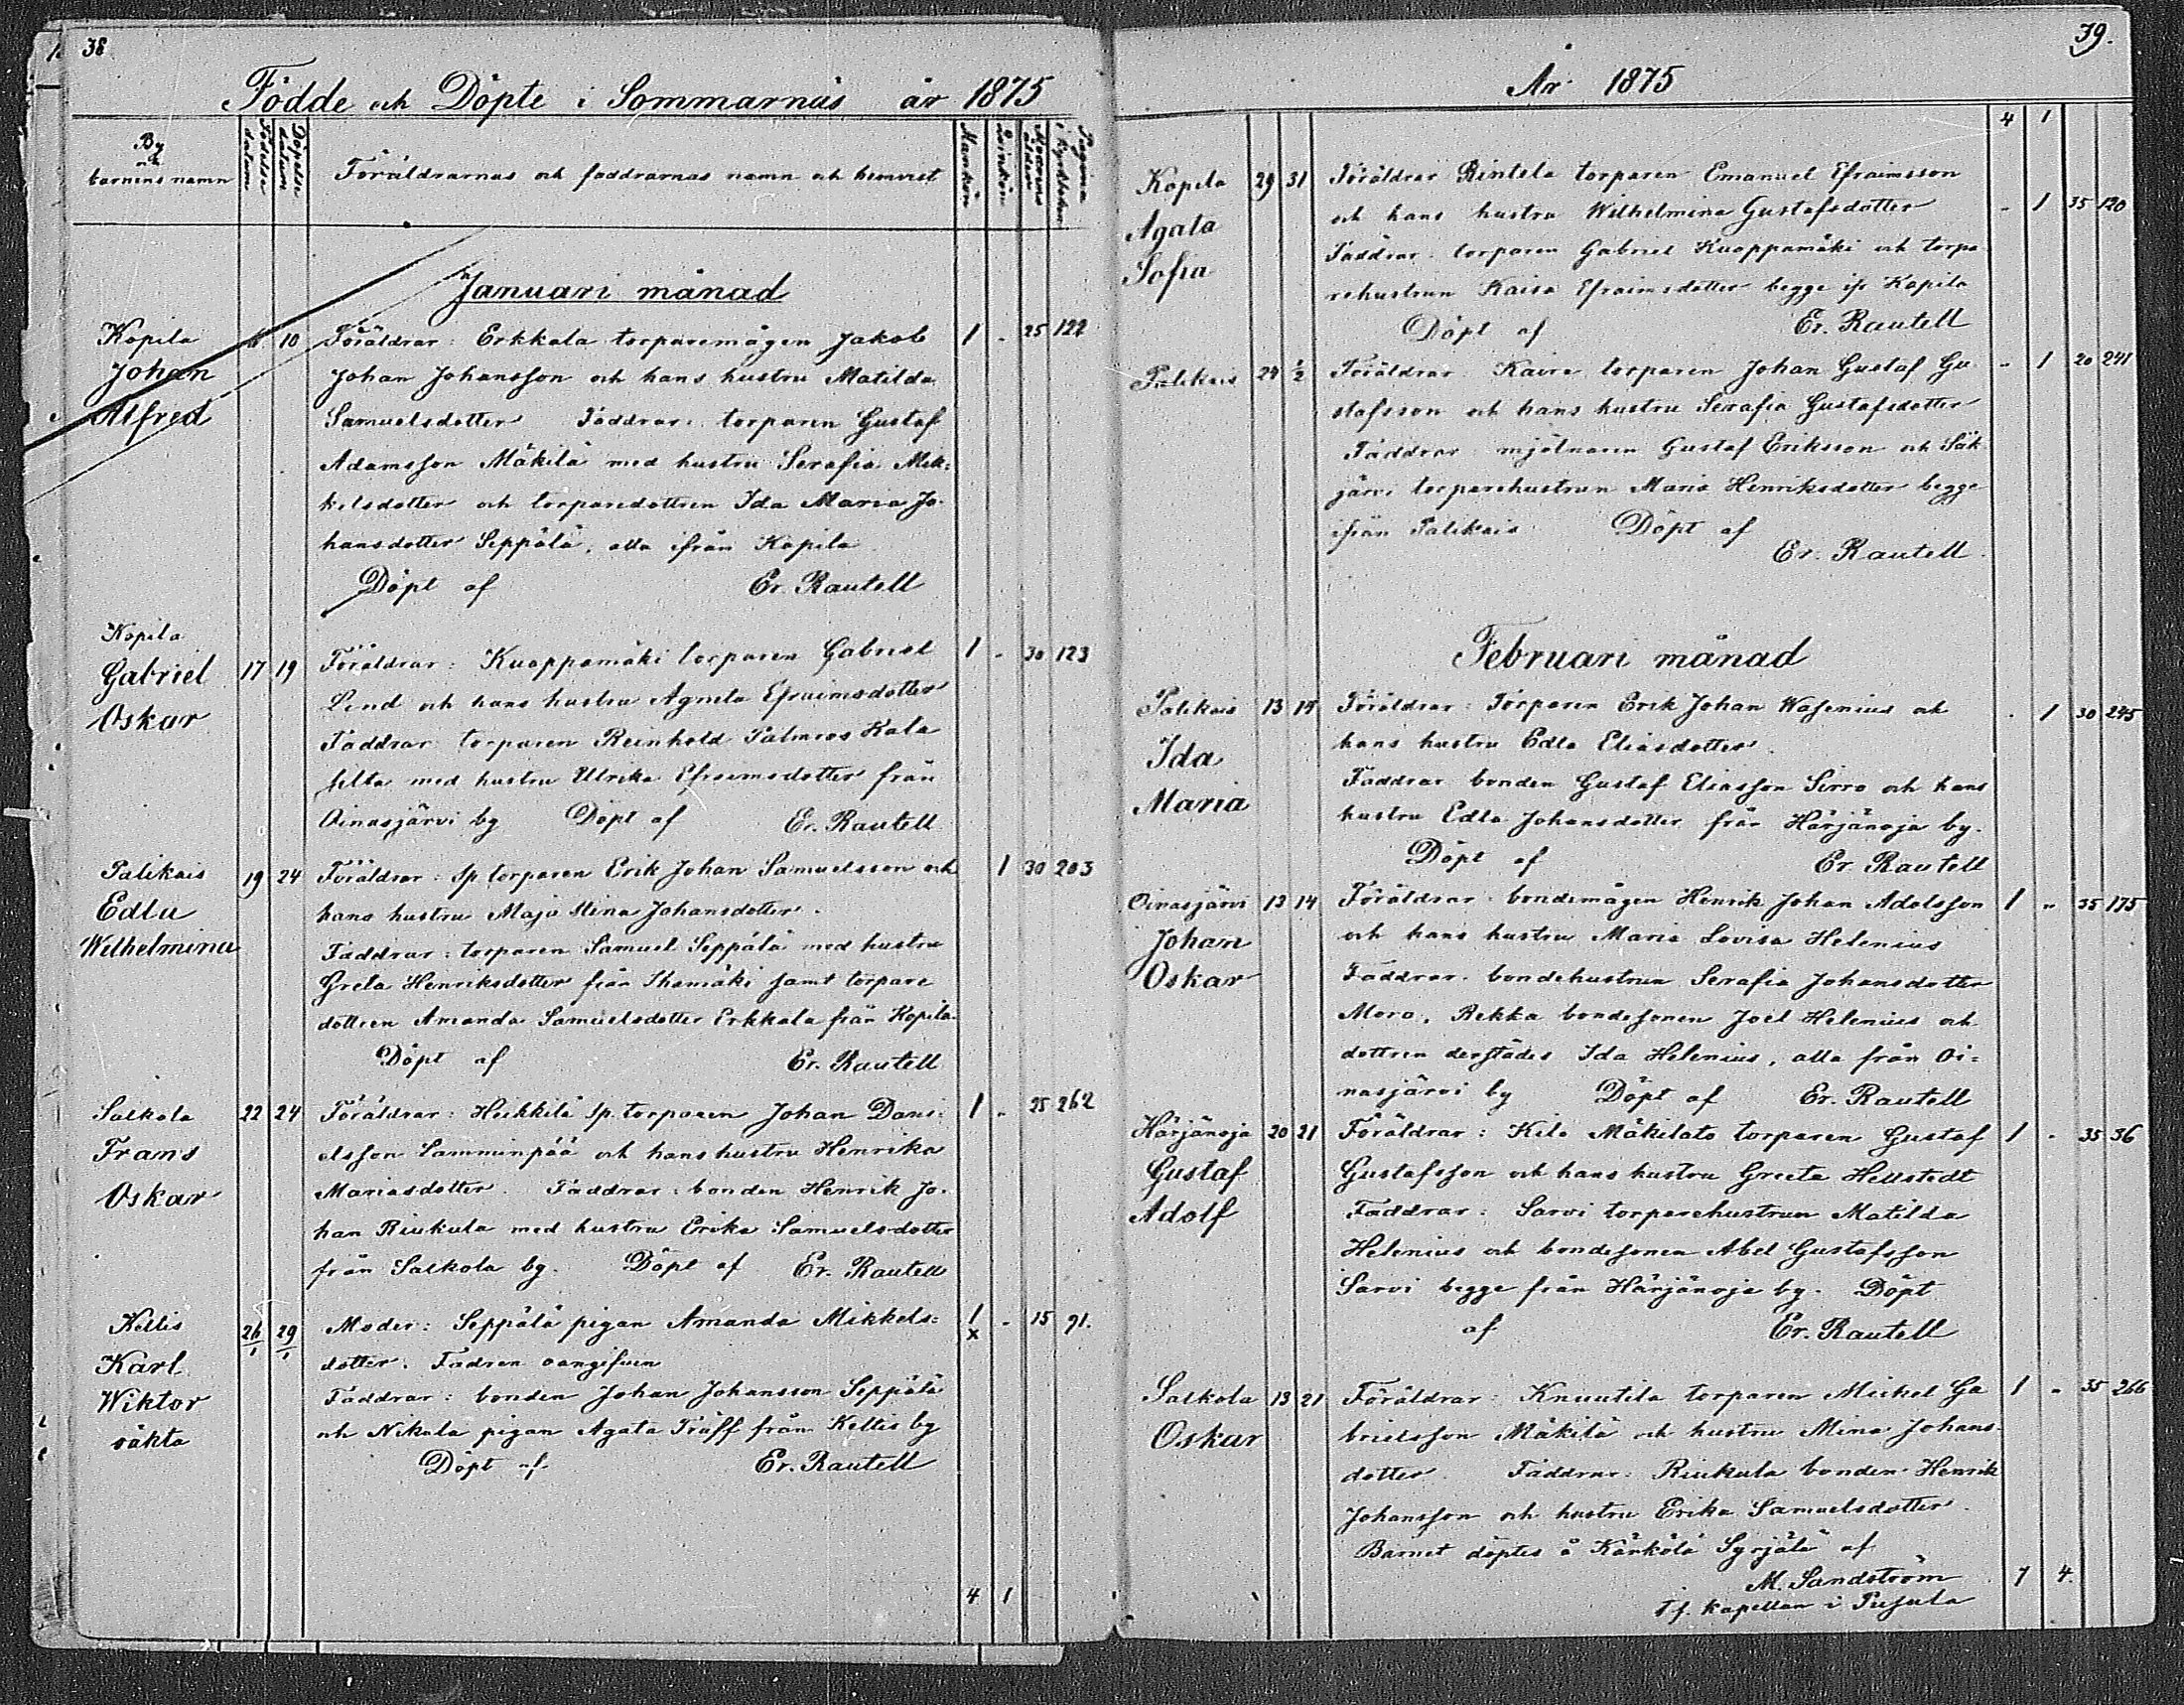 38
Födde och Döpte i Sommarnäs år 1875
By och barnens namn
Födelse datum
Döpelse datum
Föräldrarnas och faddrarnas namn och hemvist
Mankön
Qvinkön
Modrens ålder
Pagina i kyrkboken
Januari månad
Kopila 10 Föräldrar: Erkkala torparemågen Jakob 1 - 25 122
Johan Johan Johansson och hans hustru Matilda
Alfred Samuelsdotter Faddrar: torparen Gustaf
Adamsson Mäkilä med hustru Serafia Mik-
kelsdotter och torparedottren Ida Maria Jo-
hansdotter Seppälä, alla ifrån Kopila
Döpt af Er. Rautell
Kopila
Gabriel 17 19 Föräldrar: Kuoppamäki torparen Gabriel 1 - 30 123
Oskar Lind och hans hustru Agneta Efraimsdotter
Faddrar: torparen Reinhold Palmros Kala
silta med hustru Ulrika Efraimsdotter från
Oinasjärvi by Döpt af Er. Rautell
Palikais 19 24 Föräldrar: Sp torparen Erik Johan Samuelsson och 1 30 203
Edla hans hustru Maja Stina Johansdotter.
Wilhelmina Faddrar: torparen Samuel Seppälä med hustru
Greta Henriksdotter från Ihamäki samt torpare
dottren Amanda Samuelsdotter Erkkala från Kopila.
Döpt af Er. Rautell
Salkola 22 24 Föräldrar: Heikkilä Sp. torparen Johan Dani- 1 - 25 262
Frans elsson Samminpää och hans hustru Henrika
Oskar Mariasdotter. Faddrar: bonden Henrik Jo-
han Riukula med hustru Erika Samuelsdotter
från Salkola by. Döpt af Er. Rautell
Keltis 26/1 29/1 Moder: Seppälä pigan Amanda Mikkels= 1 x - 15 91.
Karl dotter. Fadren oangifven
Wiktor Faddrar: bonden Johan Johansson Seppälä
oäkta och Nikula pigan Agata Träff från Keltis by
Döpt af Er. Rautell
4 1
39.
År 1875
4 1
Kopila 29 31 Föräldrar Rintela torparen Emanuel Efraimsson
Agata och hans hustru Wilhelmina Gustafsdotter - 1 35 120
Sofia Faddrar: torparen Gabriel Kuoppamäki och torpa
rehustrun Kaisa Efraimsdotter begge ifr Kopila
Döpt af Er. Rautell
Palikais 24 1/2 Föräldrar: Kaira torparen Johan Gustaf Gu- - 1 20 241
stafsson och hans hustru Serafia Gustafsdotter
Faddrar: mjölnaren Gustaf Eriksson och Säk
järvi torparehustrun Maria Henriksdotter begge
ifrån Palikais Döpt af
Er. Rautell
Februari månad
Palikais 13 14 Föräldrar: Torparen Erik Johan Wasenius och - 1 30 245
Ida hans hustru Edla Eliasdotter.
Maria Faddrar bonden Gustaf Eliasson Sirro och hans
hustru Edla Johansdotter från Härjänoja by.
Döpt af Er. Rautell
Oinasjärvi 13 14 Föräldrar: bondemågen Henrik Johan Adolsson 1 - 35 175
Johan och hans hustru Maria Lovisa Helenius
Oskar Faddrar: bondehustrun Serafia Johansdotter
Mora, Rekka bondesonen Joel Helenius och
dottren derstädes Ida Helenius, alla från Oi=
nasjärvi by Döpt af Er. Rautell
Härjänoja 20 21 Föräldrar: Kilo Mäkilato torparen Gustaf 1 - 35 56
Gustaf Gustafsson och hans hustru Greeta Hellstedt
Adolf Faddrar: Sarvi torparehustrun Matilda
Helenius och bondesonen Abel Gustafsson
Sarvi begge från Härjänoja by. Döpt
af Er. Rautell
Salkola 13 21 Föräldrar: Knuutila torparen Mickel Ga 1 - 35 266
Oskar brielsson Mäkilä och hustru Mina Johans-
dotter. Faddrar: Riukula bonden Henrik
Johansson och hustru Erika Samuelsdotter.
Barnet döptes å Kärkölä Syrjälä af
M. Sandström 7 4.
T.f. kapellan i Pusula